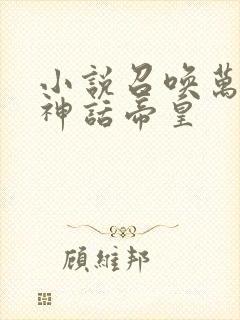 小說召喚萬
神話帝皇
顧維邦